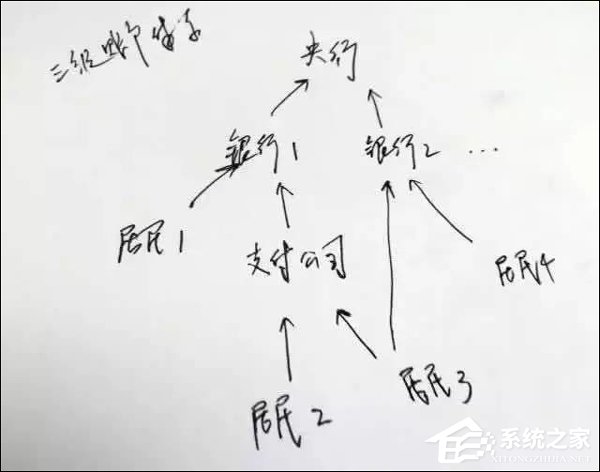 三级账户体系
央行
银行1
银行2 ...
居民1
支付公司
居民4
居民2
居民3
系统之家
XITONGZHIJIA.NET